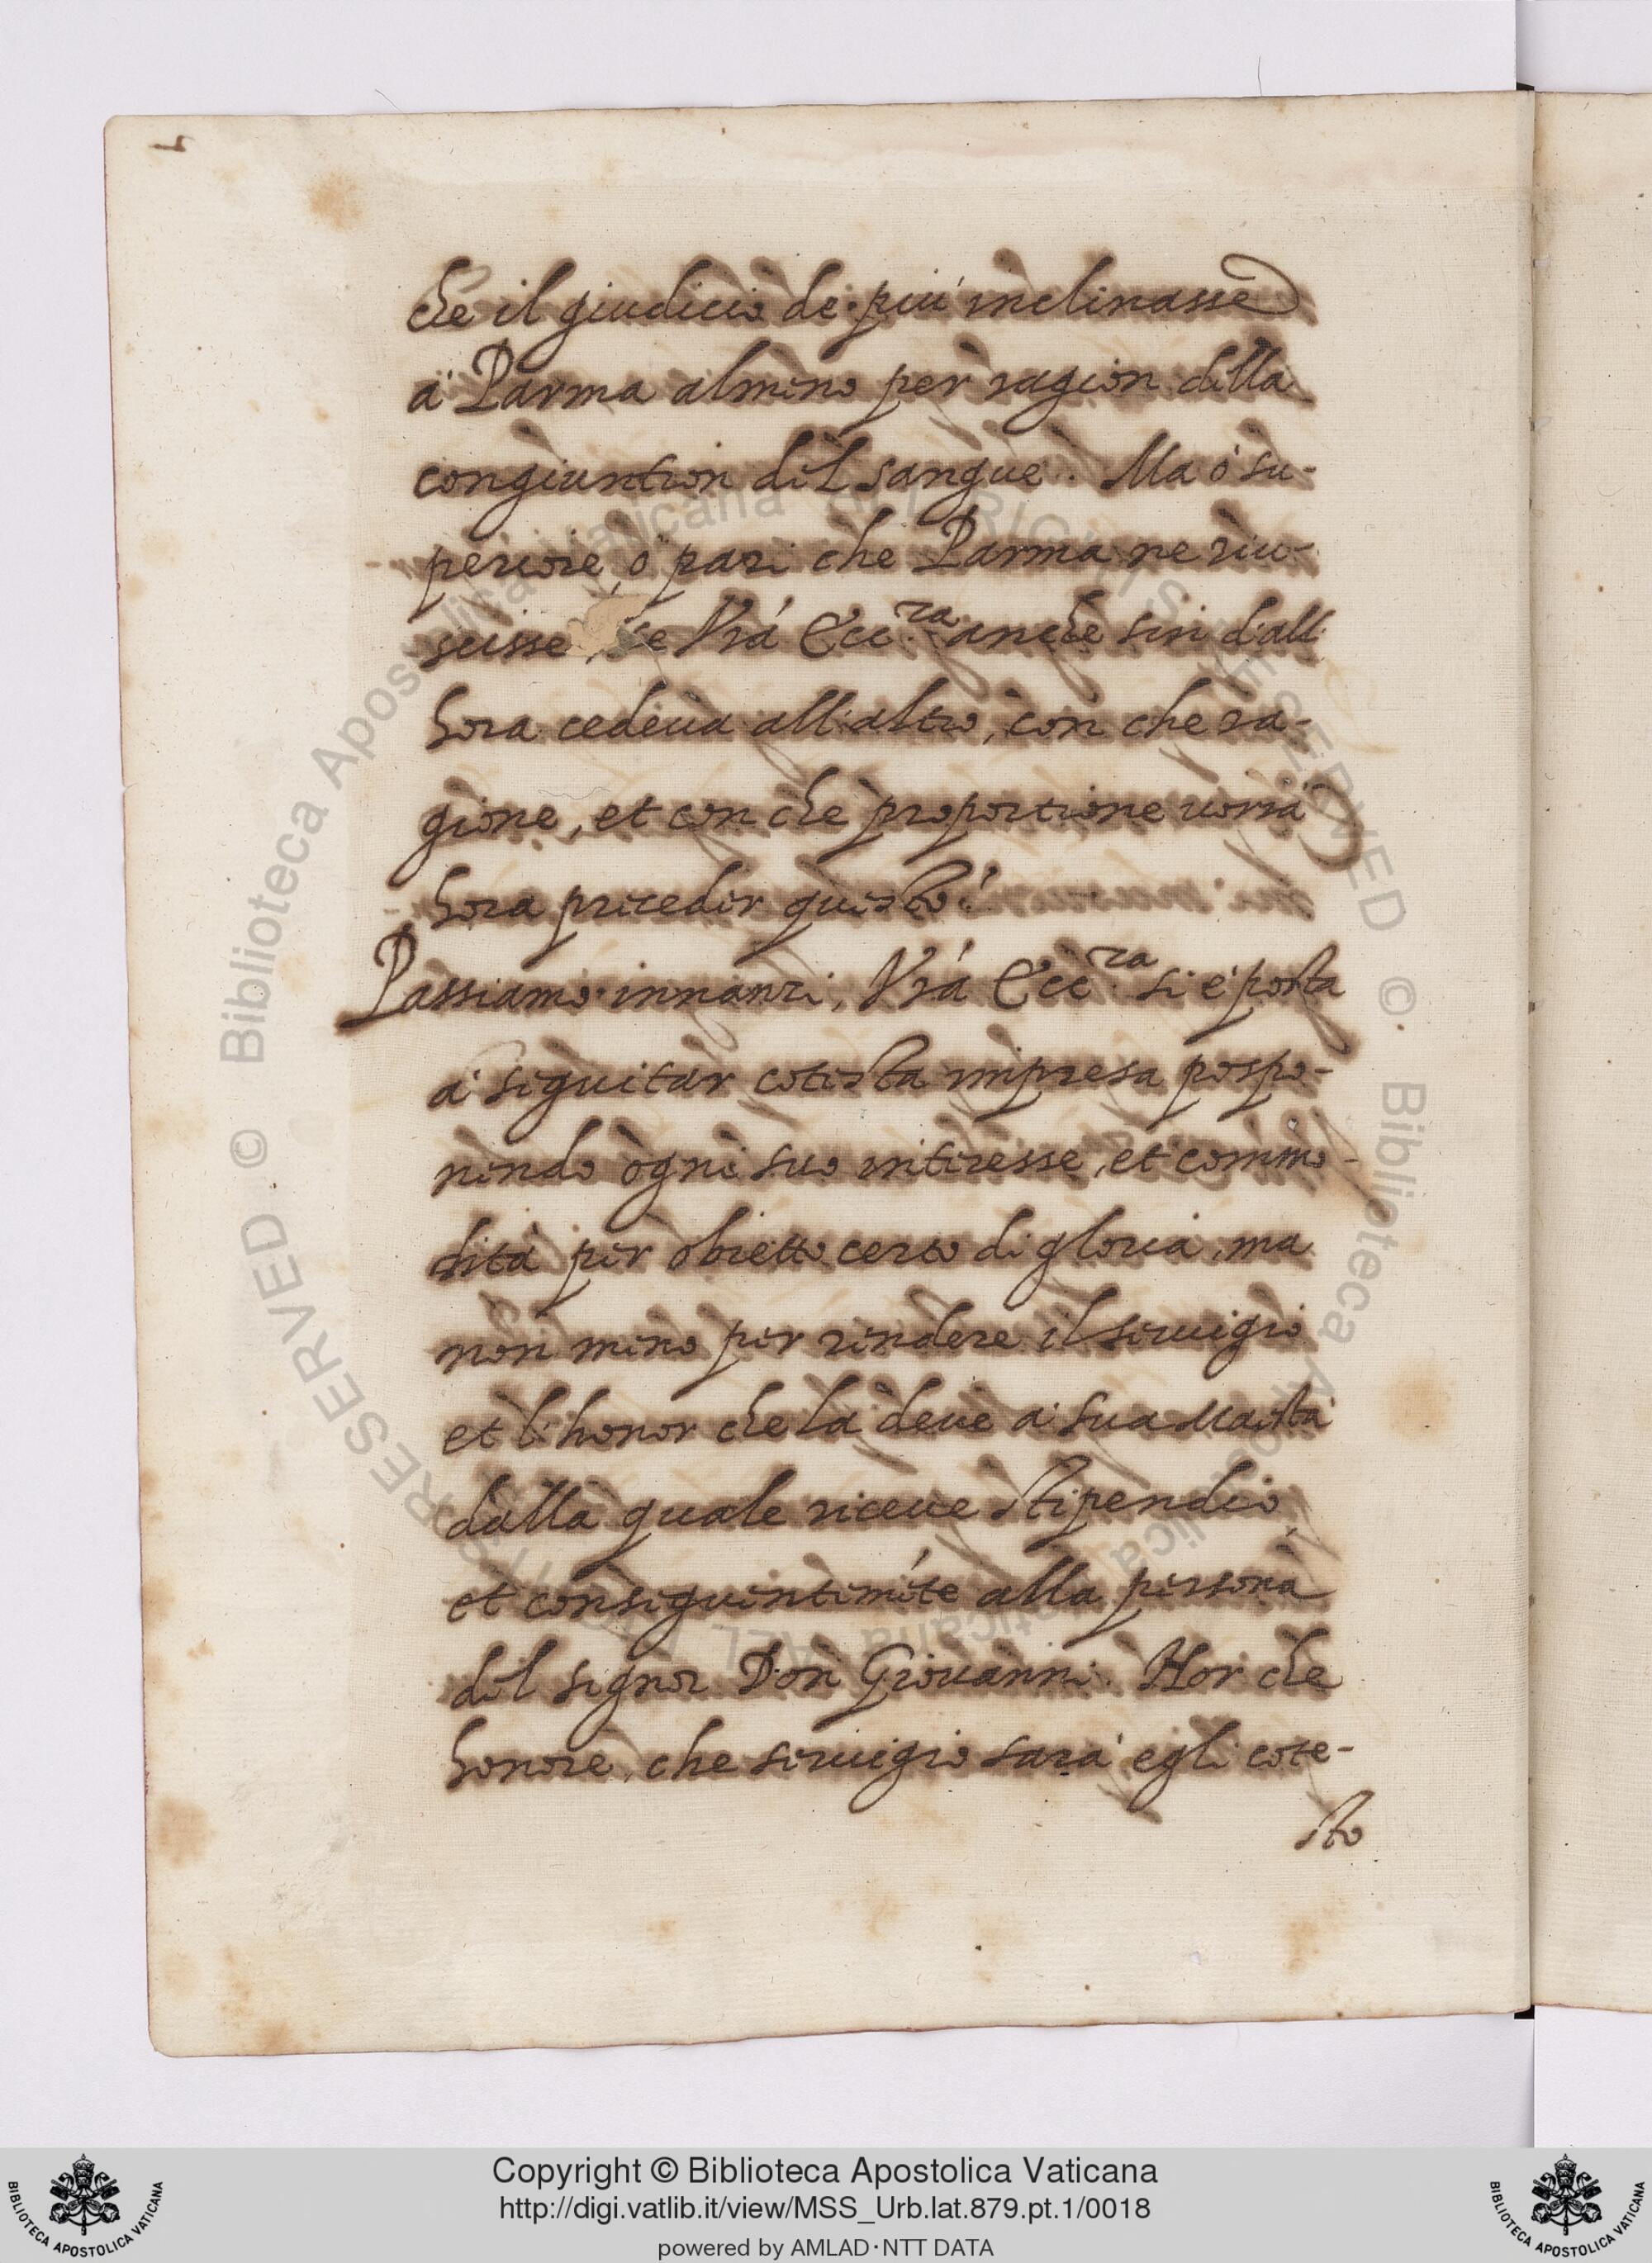 che il giudicio de più inclinasse
à Parma almeno per ragion della
congiuntion del sangue. Ma ò su-
periore, ò pari che Parma ne riu-
scisse, se Vra Ecc.za anche sin d'all'
hora cedeua all'altro, con che ra-
gione, et con che proportione uorrà
hora preceder questo?
Passiamo innanzi, Vra Ecc.za si è posta
à seguitar cotesta impresa pospo-
nendo ogni suo interesse, et commo-
dità per obietto certo di gloria, ma
non meno per rendere il seruigio
et l'honor che la deue à sua Maestà
dalla quale riceue stipendio,
et conseguentemẽte alla persona
del signor Don Giouanni. Hor che
honore, che seruigio sarà egli cote-
sto
© Biblioteca Apostolica Vaticana ALL RIGHTS RESERVED © Biblioteca Apostolica Vaticana ALL RIGHTS RESERVED
Copyright © Biblioteca Apostolica Vaticana
http://digi.vatlib.it/view/MSS_Urb.lat.879.pt.1/0018
powered by AMLAD·NTT DATA
BIBLIOTECA APOSTOLICA VATICANA
BIBLIOTECA APOSTOLICA VATICANA